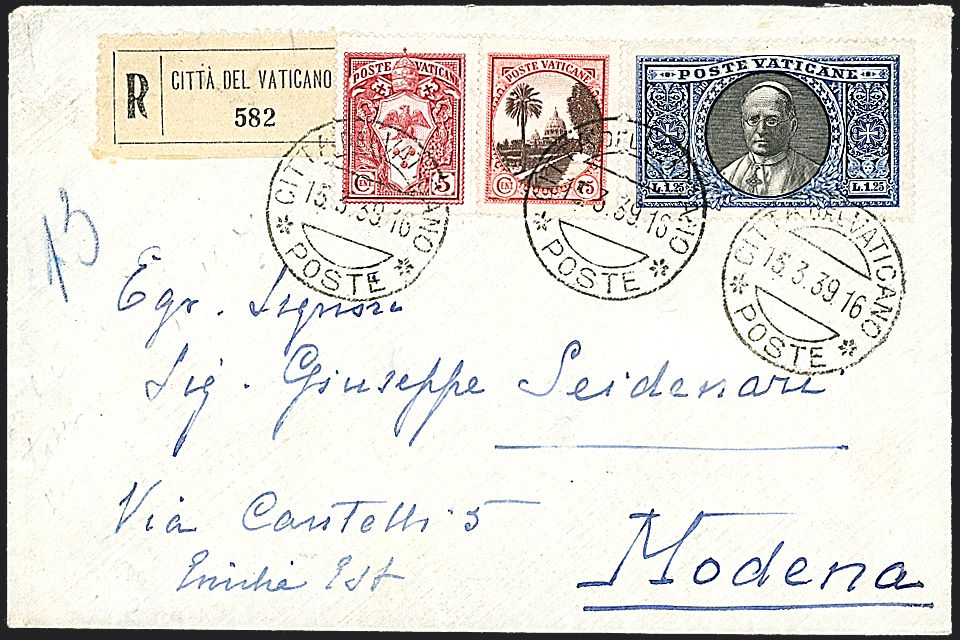 R
CITTÀ DEL VATICANO
582
POSTE VATICANE
CENT 5
POSTE VATICANE
CENT 75
POSTE VATICANE
L.1.25 L.1.25
CITTÀ DEL VATICANO
15.3.39.16
POSTE
CITTÀ DEL VATICANO
15.3.39.16
POSTE
CITTÀ DEL VATICANO
15.3.39.16
POSTE
Egr. Signore
Sig. Giuseppe Seidenari
Via Cantelli 5
Emilia Est
Modena